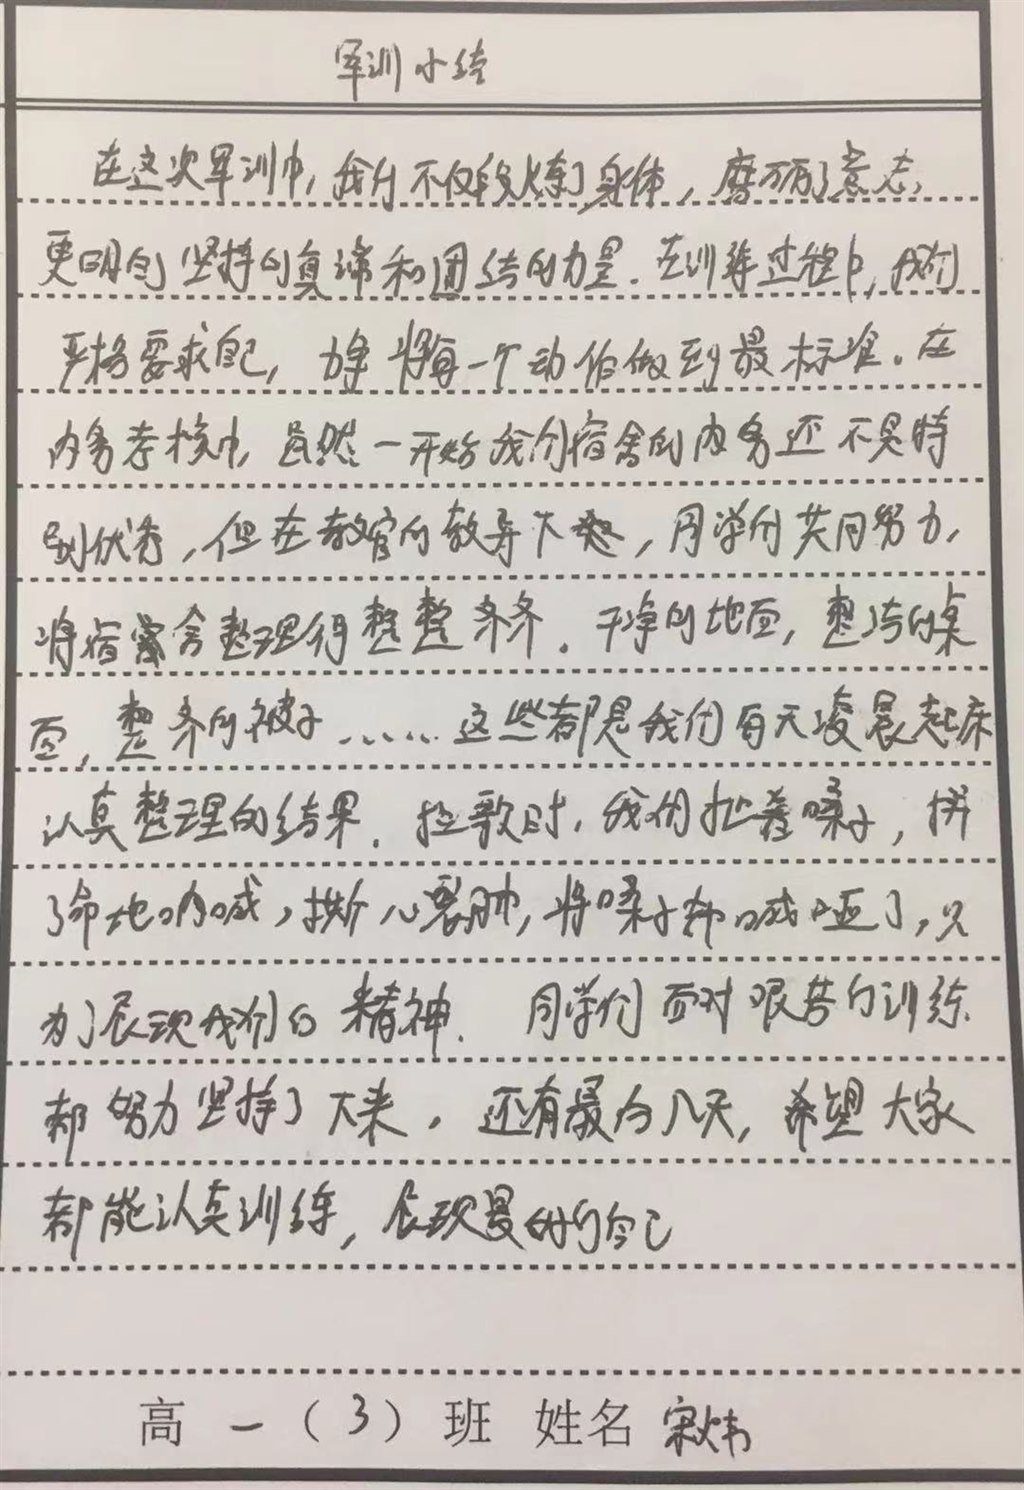 军训小结
在这次军训中,我们不仅锻炼了身体,磨砺了意志,
更明白坚持的真谛和团结的力量.在训练过程中,我们
严格要求自己,力争将每一个动作做到最标准。在
内务考核中,虽然一开始我们宿舍的内务还不是特
别优秀,但在教官的教导下,同学们共同努力,
将宿舍整理得整整齐齐。干净的地面,整洁的桌
面,整齐的被子……这些都是我们每天凌晨起床
认真整理的结果.拉歌时,我们扯着嗓子,拼
了命地呐喊,撕心裂肺,将嗓子都喊哑了,只
为了展现我们的精神.同学们面对艰苦的训练
都努力坚持了下来。还有最后几天,希望大家
都能认真训练,展现最好的自己
高一(3)班 姓名 宋炜